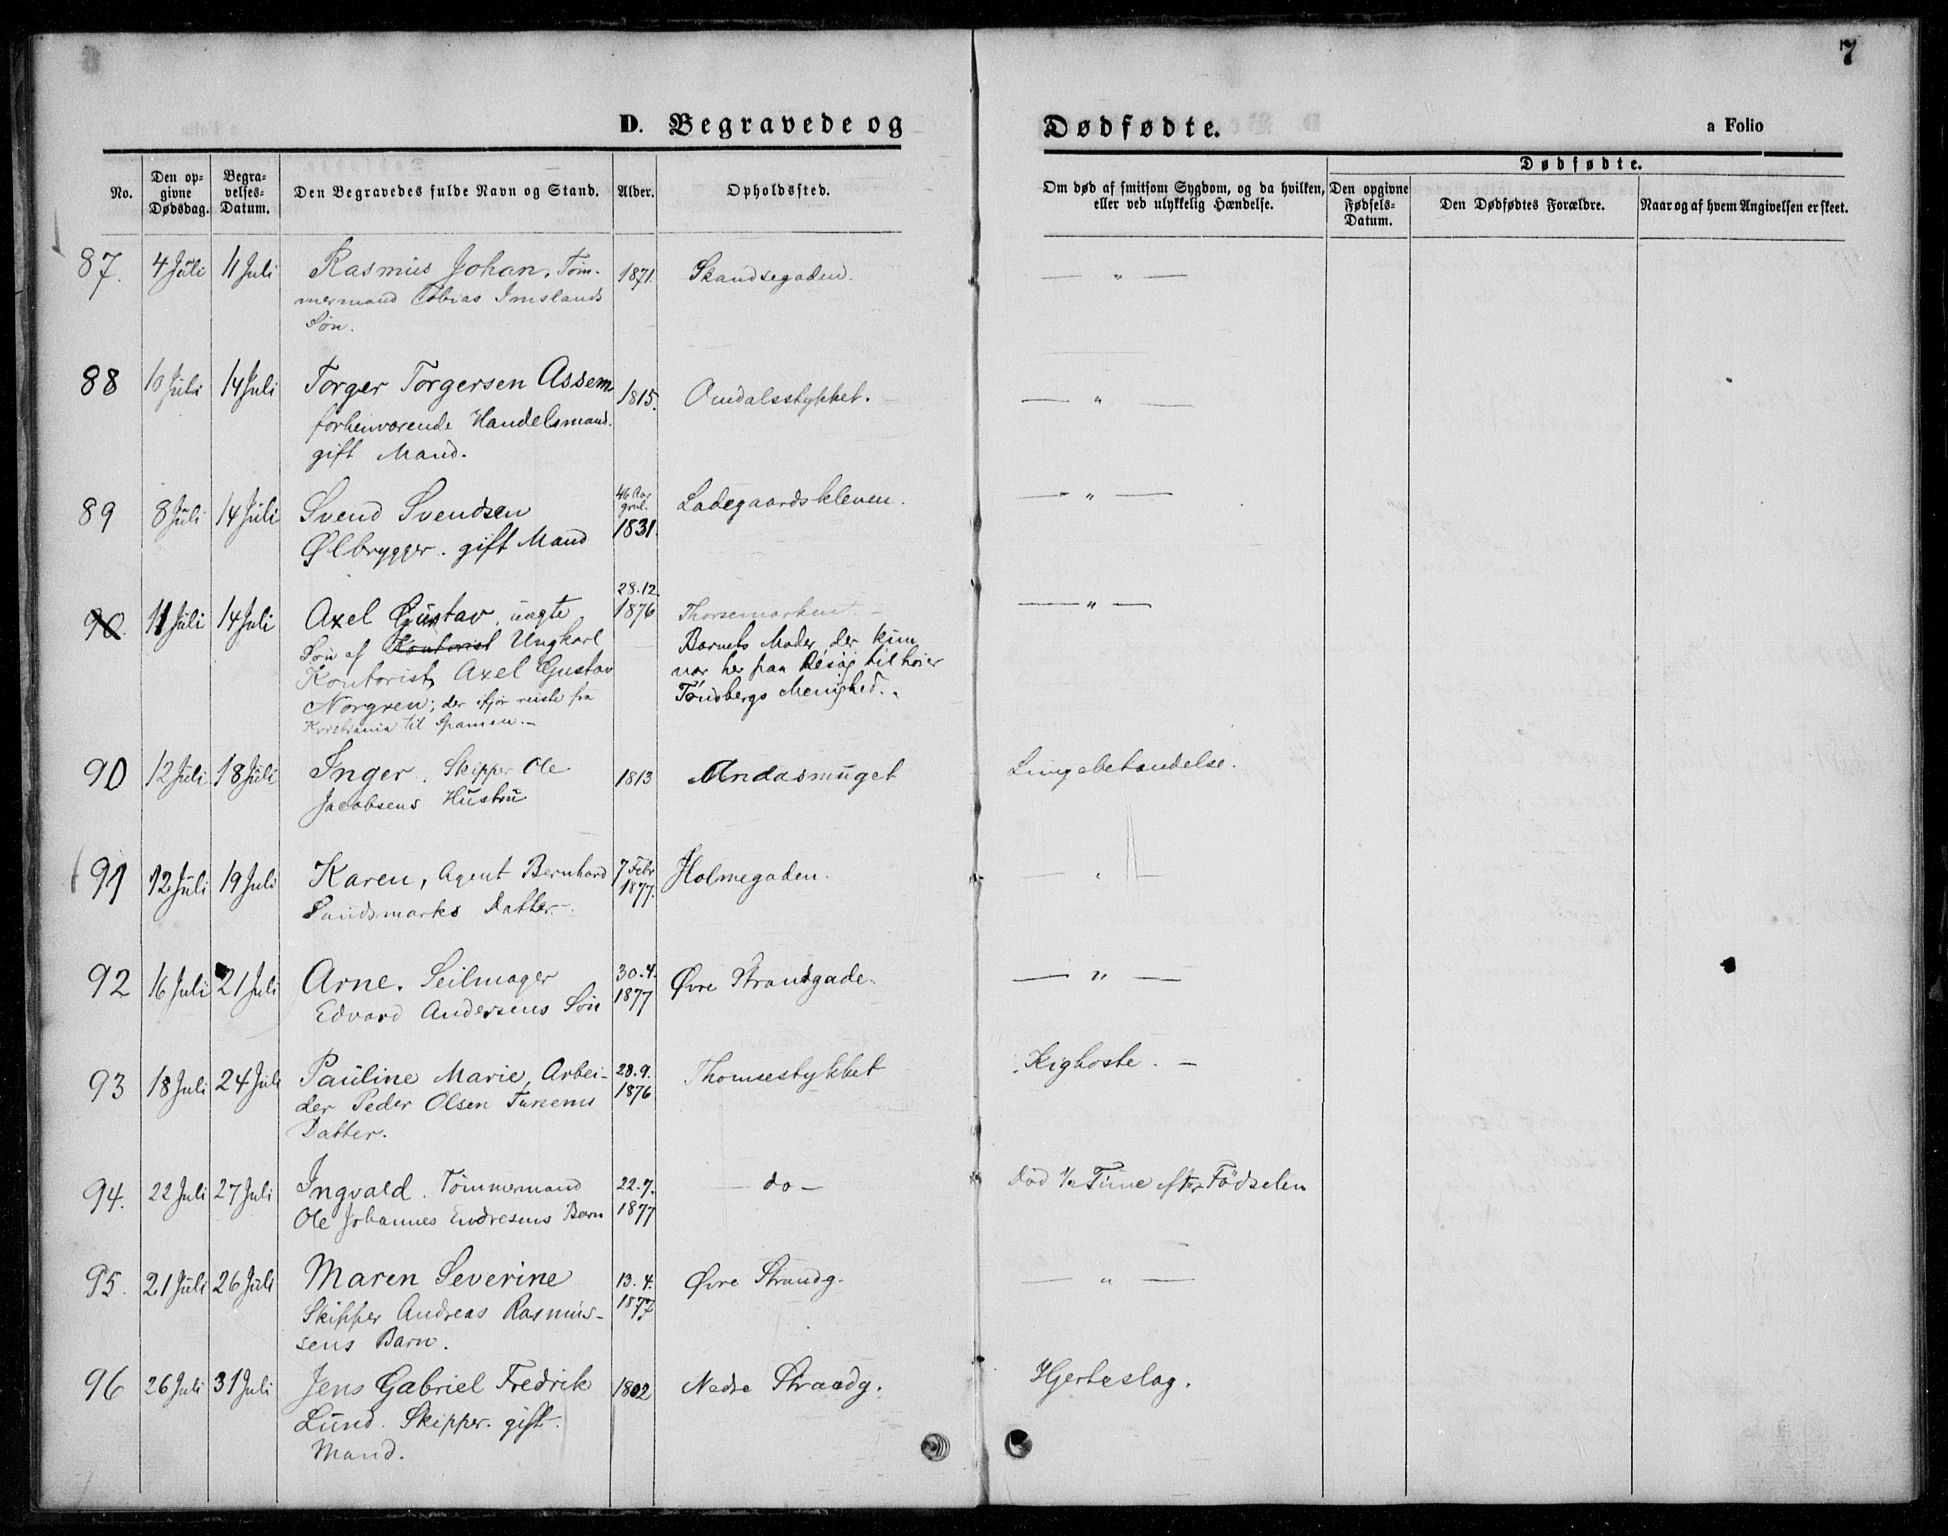 7
D. Begravede og Dødfødte.
a Folio
No.
Den opgivne Dødsdag.
Begravelses-Datum.
Den Begravedes fulde Navn og Stand.
Alder.
Opholdssted.
Om død af smitsom Sygdom, og da hvilken, eller ved ulykkelig Hændelse.
Dødfødte.
Den opgivne Fødsels-Datum.
Den Dødfødtes Forældre.
Naar og af hvem Angivelsen er skeet.
87. 4 Juli 11 Juli Rasmus Johan, Tøm- 1871. Skandsegaden. — " —
mermand Tobias Imslands
Søn.
88 10 Juli 14 Juli Torger Torgersen Assem 1815. Omdalsstykket. — " —
forhenværende Handelsmand.
gift Mand.
89 8 Juli 14 Juli Svend Svendsen 46 Aar 1831. Ladegaardskleven. — " —
Ølbrygger. gift Mand
90. 11 Juli 14 Juli Axel Gustav, uægte 28.12 1876 — " —
Søn af Kontorist Ungkarl Barnets Moder, der kun
Kontorist Axel Gustav var her paa Besøg tilhører
Norgren; der ifjor reiste fra Tønsbergs Menighed.
Kristiania til Spanien. —
90 12 Juli 18 Juli Inger. Skipper Ole 1813 Andasmuget Lungebetændelse.
Jacobsens Hustru
91 12 Juli 19 Juli Karen, Agent Bernhard 7 Febr 1877. Holmegaden.
Sandsmarks Datter.
92 16 Juli 21 Juli Arne. Seilmager 30.4. 1877 Øvre Strandgade. — " —
Edvard Andersens Søn
93 18 Juli 24 Juli Pauline Marie, Arbei- 28.9. 1876 Thomsestykket Kighoste. —
der Peder Olsen Tunems
Datter.
94. 22 Juli 27 Juli Ingvald. Tømmermand 22.7. 1877 — do — Død ½ Time efter Fødselen
Ole Johannes Endresens Barn
95. 21 Juli 26 Juli Maren Severine 13.4. 1877 Øvre Strandg. — " —
Skipper Andreas Rasmus-
sens Barn.
96 26 Juli 31 Juli Jens Gabriel Fredrik 1802 Nedre Strandg. Hjerteslag.
Lund. Skipper. gift.
Mand.